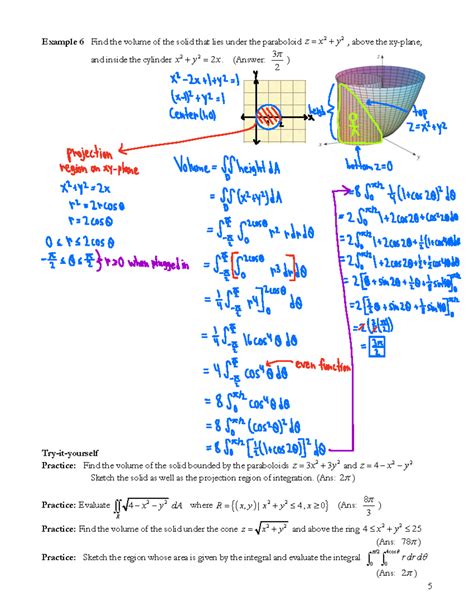 Example 6 Find the volume of the solid that lies under the paraboloid z = x² + y² , above the xy-plane,
and inside the cylinder x² + y² = 2x. (Answer: 3π/2 )
x²-2x+1+y²=1
(x-1)²+y²=1
Center(1,0)
x
z
height
top
z=x²+y²
bottom z=0
x
y
projection
region on xy-plane
x²+y²=2x
r²=2rcosθ
r=2cosθ
0≤r≤2cosθ
-π/2≤θ≤π/2 } r≥0 when plugged in
Volume = ∬_D height dA
= ∬_D (x²+y²)dA
= ∫_{-π/2}^{π/2} ∫_0^{2cosθ} r² r dr dθ
= ∫_{-π/2}^{π/2} [∫_0^{2cosθ} r³ dr] dθ
= 1/4 ∫_{-π/2}^{π/2} r⁴]_0^{2cosθ} dθ
= 1/4 ∫_{-π/2}^{π/2} 16cos⁴θ dθ
= 4 ∫_{-π/2}^{π/2} cos⁴θ dθ
even function
= 8 ∫_0^{π/2} cos⁴θ dθ
= 8 ∫_0^{π/2} (cos²θ)² dθ
= 8 ∫_0^{π/2} [1/2(1+cos2θ)]² dθ
= 8 ∫_0^{π/2} 1/4(1+cos2θ)² dθ
= 2 ∫_0^{π/2} 1+2cos2θ+cos²2θ dθ
= 2 [θ+sin2θ+
= 3π/2
Try-it-yourself
Practice: Find the volume of the solid bounded by the paraboloids z = 3x² + 3y² and z = 4 − x² − y²
Sketch the solid as well as the projection region of integration. (Ans: 2π )
Practice: Evaluate ∬_R √(4 − x² − y²) dA where R = {(x, y) | x² + y² ≤ 4, x ≥ 0} (Ans: 8π/3 )
Practice: Find the volume of the solid under the cone z = √(x² + y²) and above the ring 4 ≤ x² + y² ≤ 25
(Ans: 78π )
Practice: Sketch the region whose area is given by the integral and evaluate the integral ∫_0^{π/2} ∫_0^{4cosθ} r dr dθ
(Ans: 2π )
5